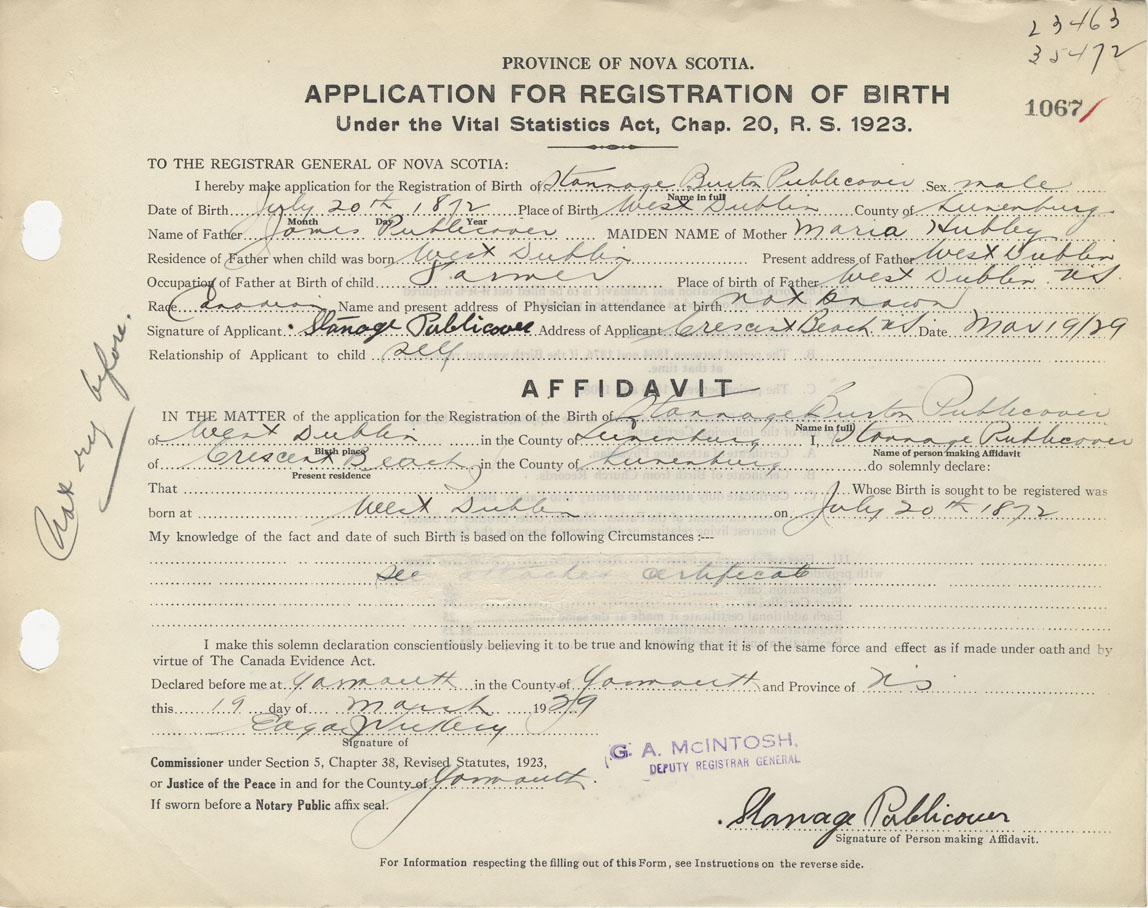 23463
35472
1067/
PROVINCE OF NOVA SCOTIA.
APPLICATION FOR REGISTRATION OF BIRTH
Under the Vital Statistics Act, Chap. 20, R. S. 1923.
TO THE REGISTRAR GENERAL OF NOVA SCOTIA:
I hereby make application for the Registration of Birth of Stannage Burton Publicover Sex male
Name in full
Date of Birth July 20th 1872 Place of Birth West Dublin County of Lunenburg
Month Day Year
Name of Father James Publicover MAIDEN NAME of Mother Maria Hubley
Residence of Father when child was born West Dublin Present address of Father West Dublin
Occupation of Father at Birth of child Farmer Place of birth of Father West Dublin N.S.
Race Canadian Name and present address of Physician in attendance at birth not known
Signature of Applicant Stanage Publicover Address of Applicant Crescent Beach N.S. Date Mar 19/29
Relationship of Applicant to child self
AFFIDAVIT
IN THE MATTER of the application for the Registration of the Birth of Stannage Burton Publicover
Name in full
of West Dublin in the County of Lunenburg I, Stannage Publicover
Birth place Name of person making Affidavit
of Crescent Beach, in the County of Lunenburg do solemnly declare:
Present residence
That Whose Birth is sought to be registered was
born at West Dublin on July 20th 1872
My knowledge of the fact and date of such Birth is based on the following Circumstances :---
see attached certificate
I make this solemn declaration conscientiously believing it to be true and knowing that it is of the same force and effect as if made under oath and by
virtue of The Canada Evidence Act.
Declared before me at Yarmouth in the County of Yarmouth and Province of N S
this 19 day of March 1929
Edgar
Signature of
Commissioner under Section 5, Chapter 38, Revised Statutes, 1923,
or Justice of the Peace in and for the County of Yarmouth
If sworn before a Notary Public affix seal.
G. A. McINTOSH,
DEPUTY REGISTRAR GENERAL
Stanage Publicover
Signature of Person making Affidavit.
For Information respecting the filling out of this Form, see Instructions on the reverse side.
Not before.